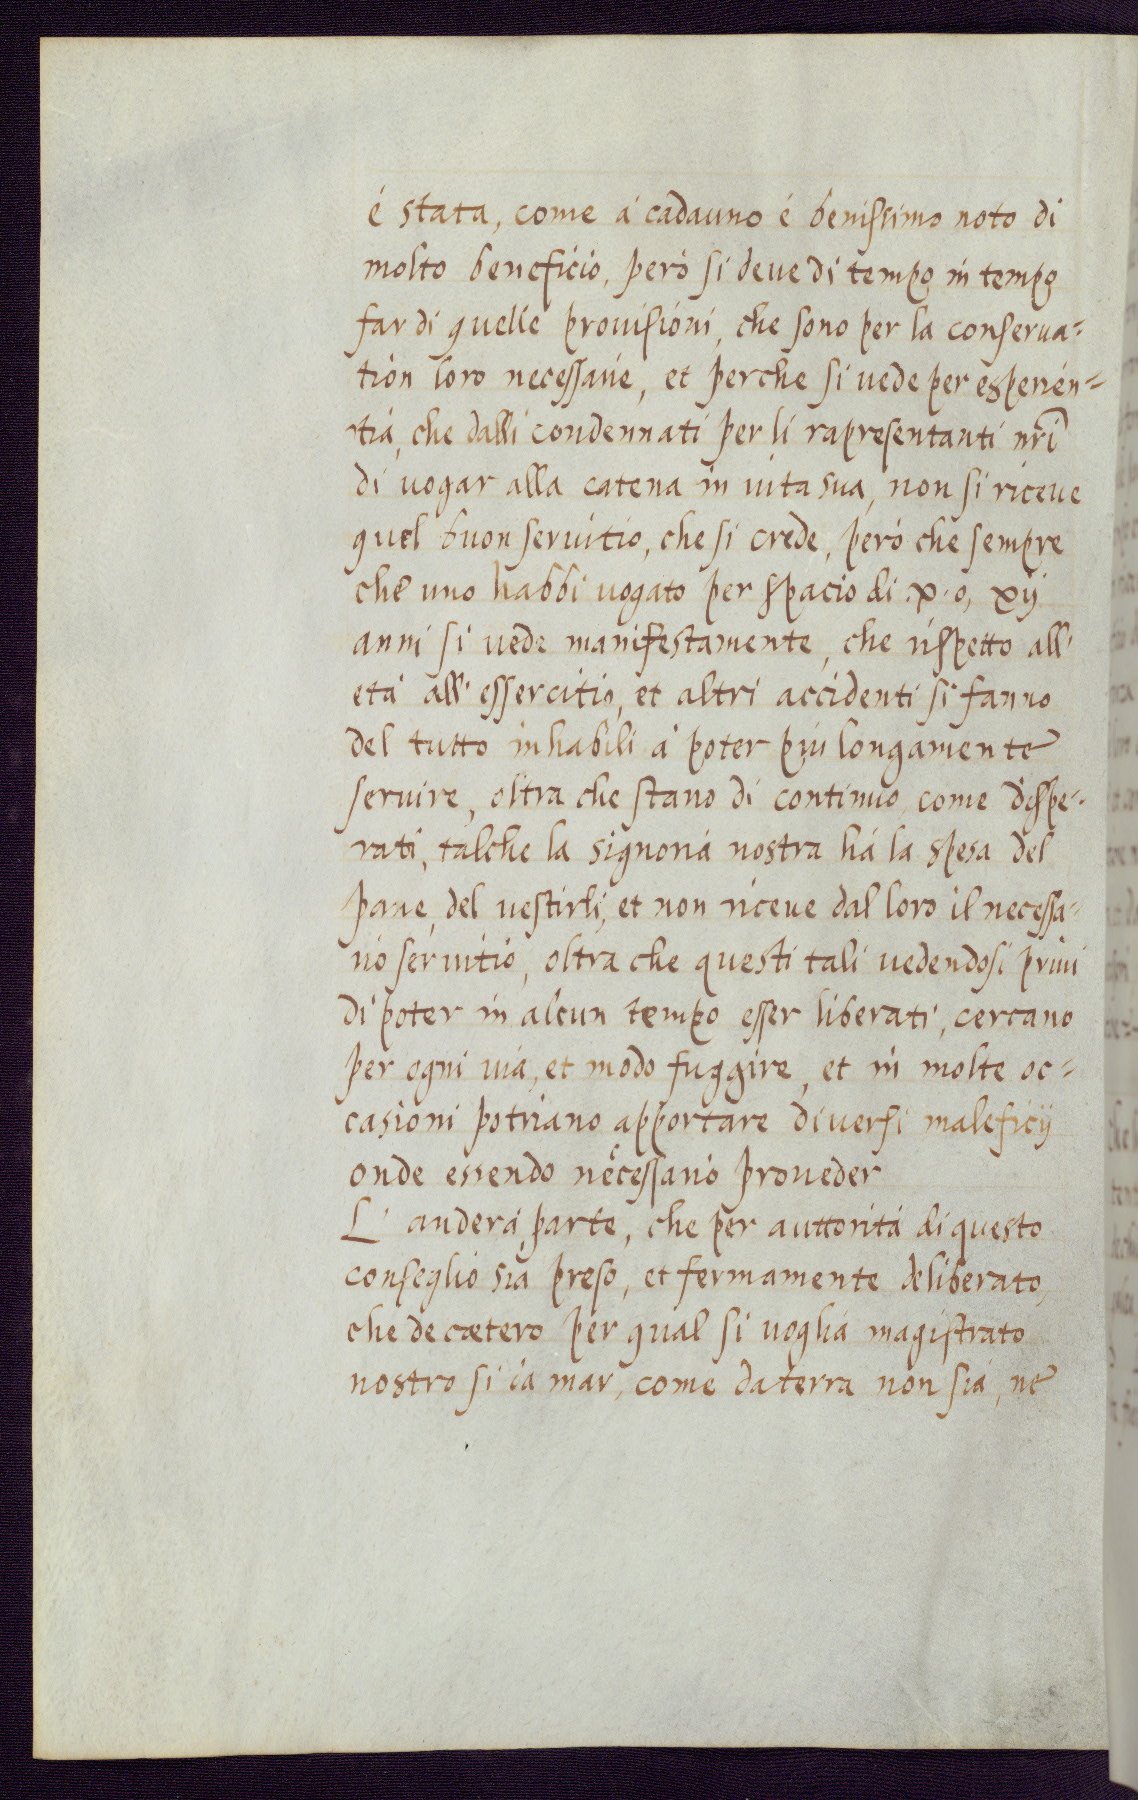 é stata, come á cadauno é benissimo noto di
molto beneficio, peró si deve di tempo in tempo
far di quelle provisioni, che sono per la conserva-
tion loro necessarie, et perche si vede per esperien-
tia, che dalli condennati per li rapresentanti nri
di vogar alla catena in vita sua, non si riceve
quel buon servitio, che si crede, peró che sempre
che uno habbi vogato per spacio di .x. o, xij
anni si vede manifestamente, che rispetto all'
etá all' essercitio, et altri accidenti si fanno
del tutto inhabili á poter piu longamente
servire, oltra che stano di continuo, come dispe-
rati, talche la signoria nostra há la spesa del
pane, del vestirli, et non riceve dal loro il necessa-
rio servitio, oltra che questi tali vedendosi privi
di poter in alcun tempo esser liberati, cercano
per ogni via, et modo fuggire, et in molte oc-
casioni potriano apportare diversi maleficij
onde essendo necessario proveder
L' anderá parte, che per auttoritá di questo
conseglio sia preso, et fermamente deliberato,
che de cætero per qual si voglia magistrato
nostro si da mar, come da terra non sia, ne